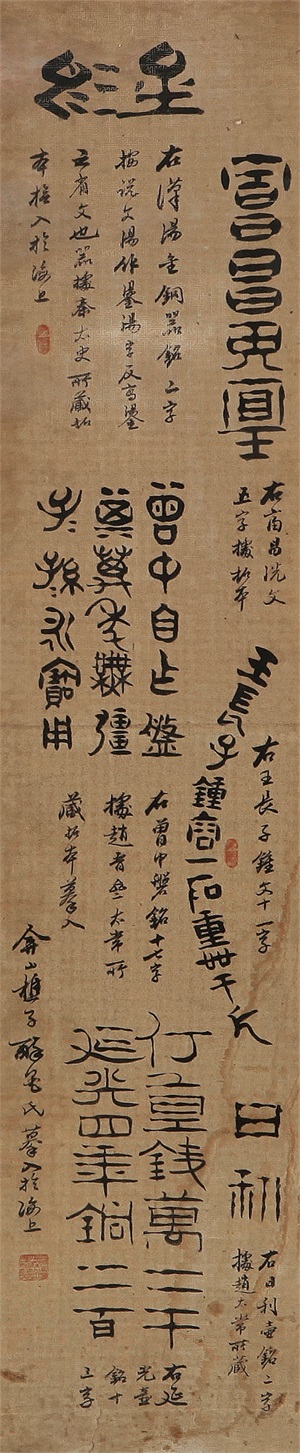 富昌宜侯王
右富昌洗文
五字據拓本
王長子
鍾容一石重卅千斤
右王長子鍾文十一字
日利
右日利壺銘二字
據趙太常所藏
右漢湯金銅器銘二字
按說文湯作 湯字反寫
云省文也器據奉太史所藏拓
本橅入於海上
曾中自乍盤
其萬年無疆
子孫永寶用
右曾中盤銘十七字
據趙晉齋太常所
藏拓本摹入
行壺錢萬二千
延光四年銅二百
右延
光壺
銘十
三字
弇山樵子醉 氏摹入於海上